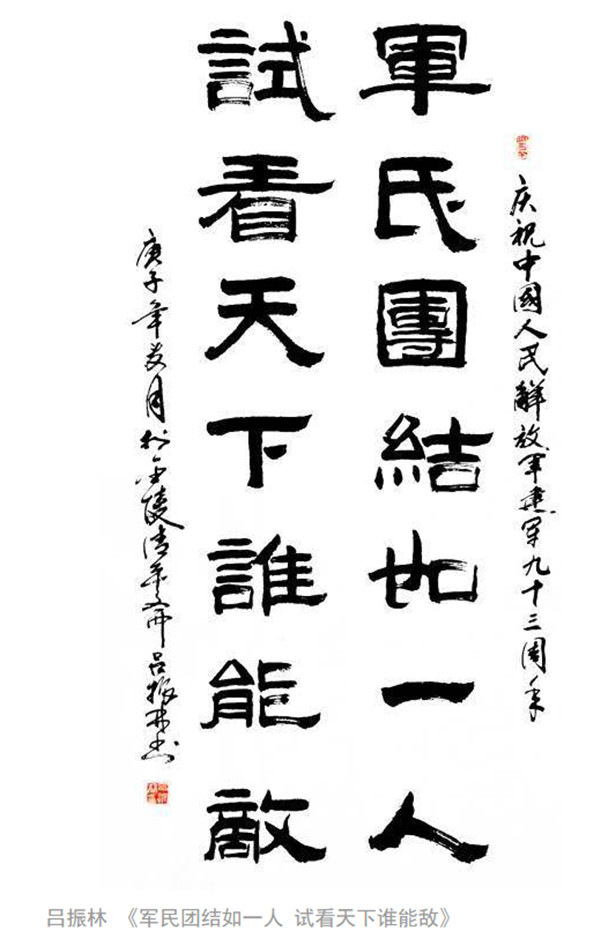 庆祝中國人民解放军建军九十三周年
軍民團結如一人
試看天下誰能敵
庚子年友月於金陵清平斋吕振林书
吕振林 《军民团结如一人 试看天下谁能敌》